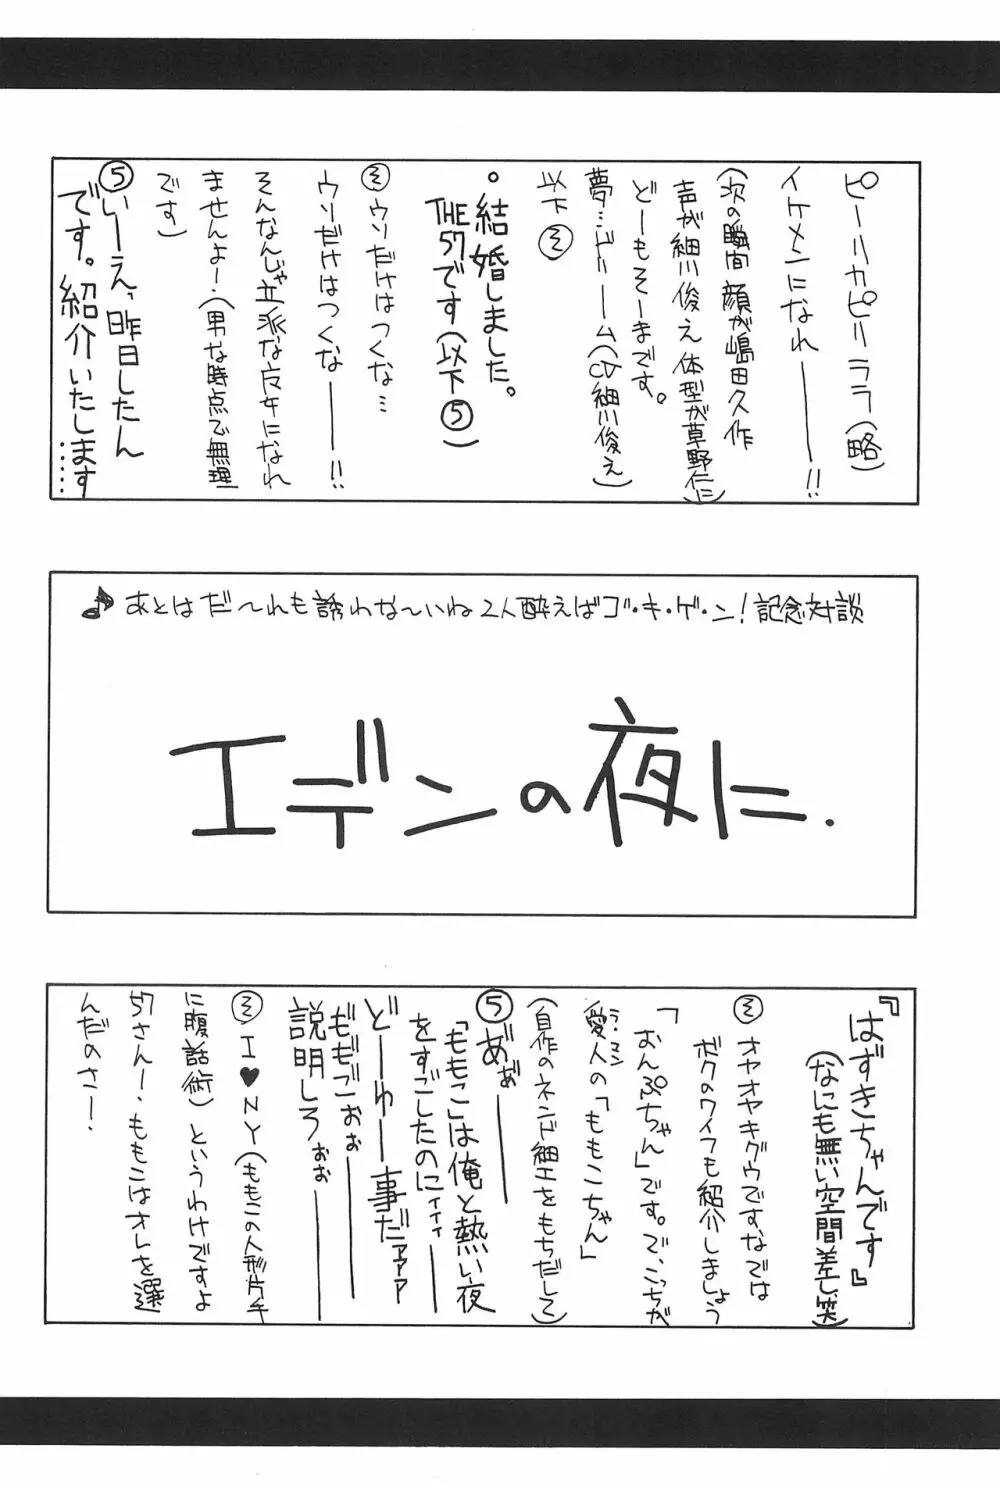 ピーリカピリララ(略)
イケメンになれ――!!
(次の瞬間 顔が嶋田久作
声が細川俊え 体型が草野仁)
どーもそーまです。
夢…ドリーム(CV細川俊え)
以下 そ
。結婚しました。
THE57です(以下5)
そ ウソだけはつくな…
ウソだけはつくな――!!
そんなんじゃ立派な女になれ
ませんよー・(男な時点で無理
です)
5 いーえ、昨日したん
です。紹介いたします……
♪あとはだ〜れも誘わな〜いね2人酔えばゴ・キ・ゲ・ン!記念対談
エデンの夜に.
『はずきちゃんです』
(なにも無い空間差し笑)
そ オヤオヤキグウですなでは
ボクのワイフも紹介しましょう
「おんぷちゃん」です。で、こっちが
愛人の「ももこちゃん」
ラ・マン
(自作のネンド細工をもちだして)
5 あ゛ぁ゛――
「ももこ」は俺と熱い夜
をすごしたのにィィィ――
ど――ゆ――事だァァァ
ももごぉぉ――
説明しろぉぉ――
そ I♥NY(ももこの人形片手
に腹話術)というわけですよ
57さんー、ももこはオレを選
んだのさー!